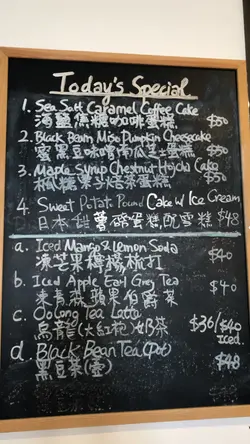 Today's Special
1. Sea Salt Caramel Coffee Cake
海鹽焦糖咖啡蛋糕 $50
2. Black Bean Miso Pumpkin Cheesecake
蜜黑豆味噌南瓜芝士蛋糕 $50
3. Maple Syrup Chestnut Hojicha Cake
楓糖栗子焙茶蛋糕 $50
4. Sweet Potato Pound Cake w Ice Cream
日本甜薯磅蛋糕配雪糕 $48
a. Iced Mango & Lemon Soda
凍芒果檸檬梳打 $40
b. Iced Apple Earl Grey Tea
凍青蘋果伯爵茶 $40
c. OoLong Tea Latte $36/$40
烏龍(大紅袍)奶茶 Iced
d. Black Bean Tea (Pot)
黑豆茶(壺) $48